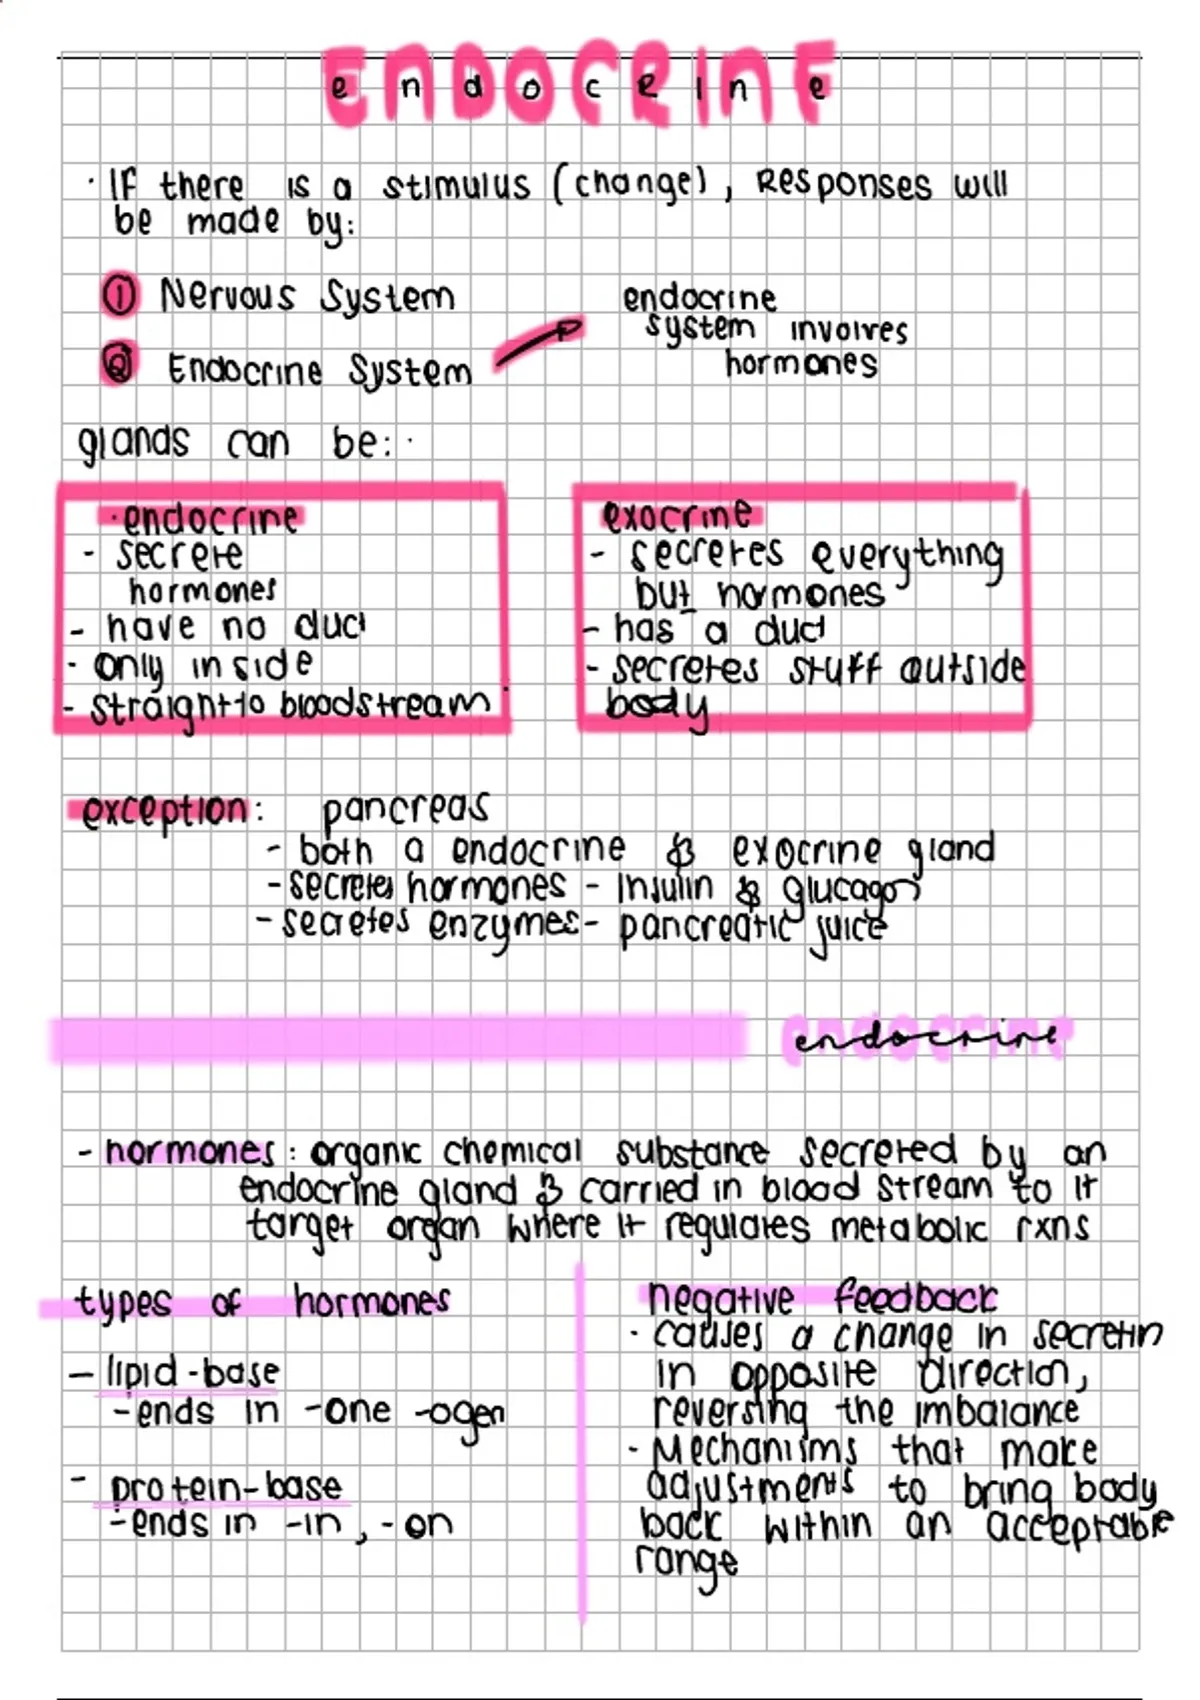 endocrine
· If there is a stimulus (change), Responses will
be made by:
① Nervous System
② Endocrine System
endocrine
system involves
hormones
glands can be:·
·endocrine
- secrete
hormones
- have no duct
- only inside
- straight to bloodstream
exocrine
- secretes everything
but hormones
- has a duct
- secretes stuff outside
body
exception: pancreas
- both a endocrine & exocrine gland
- secretes hormones - Insulin & glucagon
- secretes enzymes- pancreatic juice
endocrine
- hormones: organic chemical substance secreted by an
endocrine gland & carried in blood stream to it
target organ where it regulates metabolic rxns
types of hormones
- lipid-base
-ends in -one -ogen
- protein-base
-ends in -in, -on
negative feedback
· causes a change in secretin
in opposite direction,
reversing the imbalance
· Mechanisms that make
adjustments to bring body
back within an acceptable
range